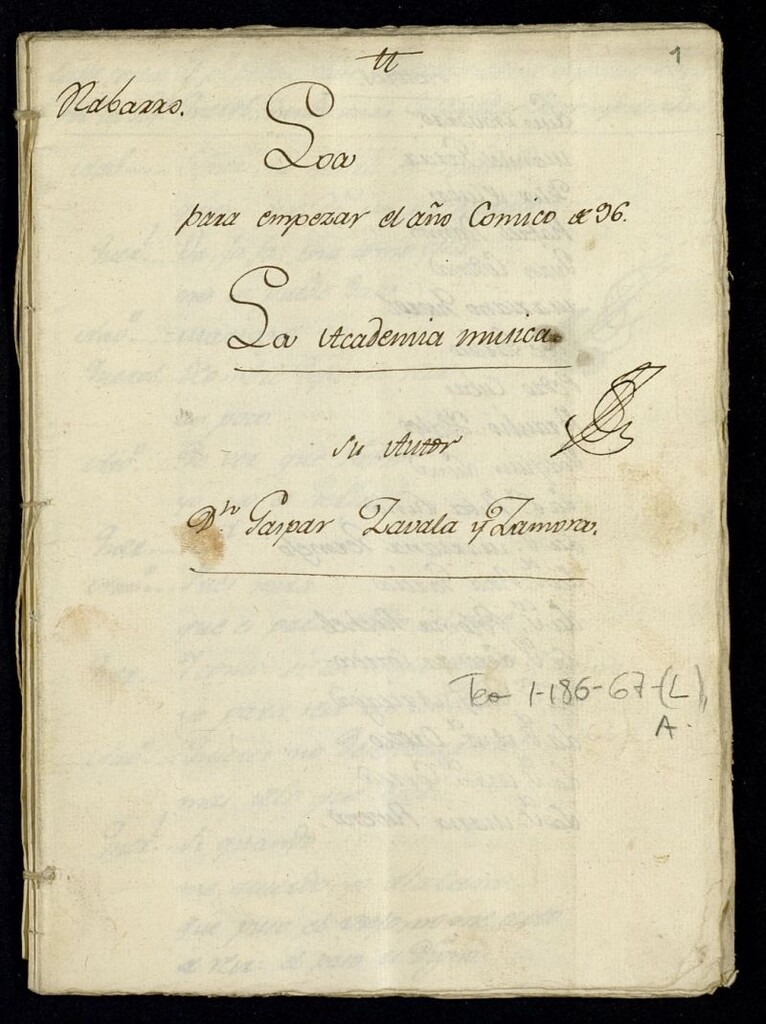 1
Nabarro.
Loa
para empezar el año Comico de 96.
La Academia musica.
Su Autor
Dn Gaspar Zavala y Zamora.
Tea 1-186-67-(L),
A.